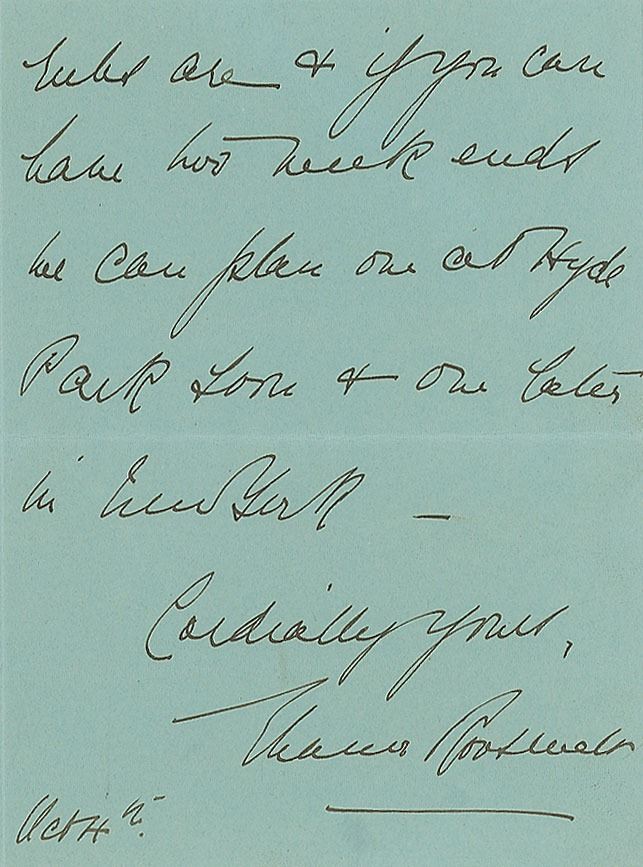 rules are & if you can
have two week ends
we can plan one at Hyde
Park soon & one later
in New York —
Cordially yours,
Eleanor Roosevelt
Oct 4th.